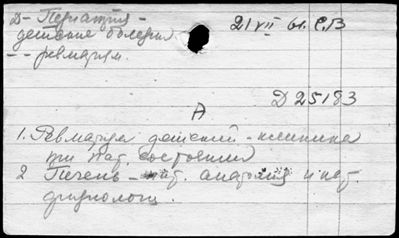 Д- Педиатрия -
детские болезни
-- ревматизм.
21 VII 61. С,В
Д 25183
А
1. Ревматизм детский - клиника
при пат. состоянии
2 Печень - пат. анатомия и пат.
физиология.